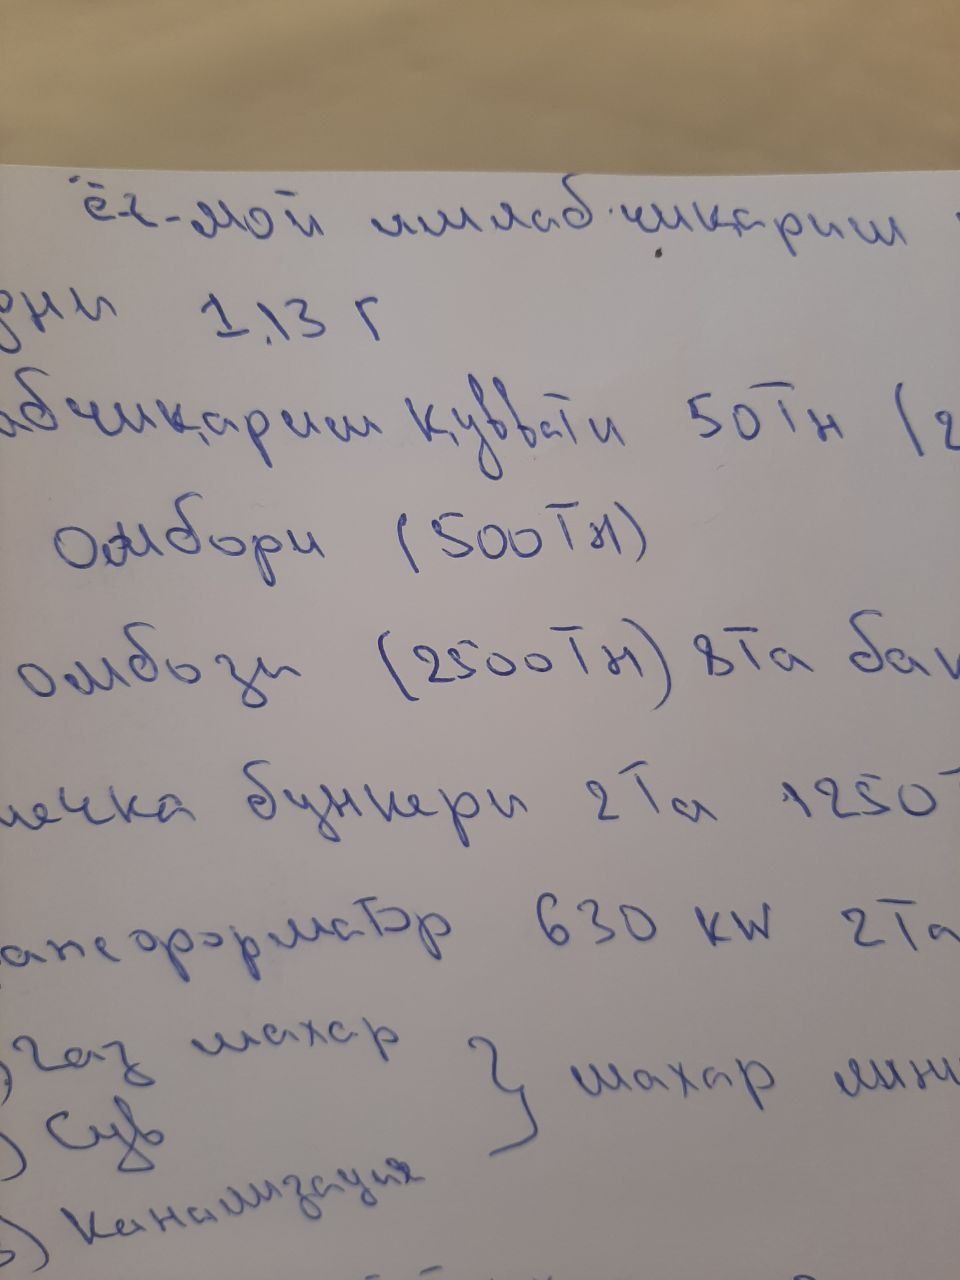 ёғ-мой ишлаб чиқариш
дни 1,13 г
абчиқариш қуввати 50 Тн (2
Омбори (500 Тн)
омбози (2500 Тн) 8 Та бак
мечка бункери 2 Та 1250 Т
ансформатор 630 KW 2 Та
) газ шахар } шахар лини
) Сув
) Канализация